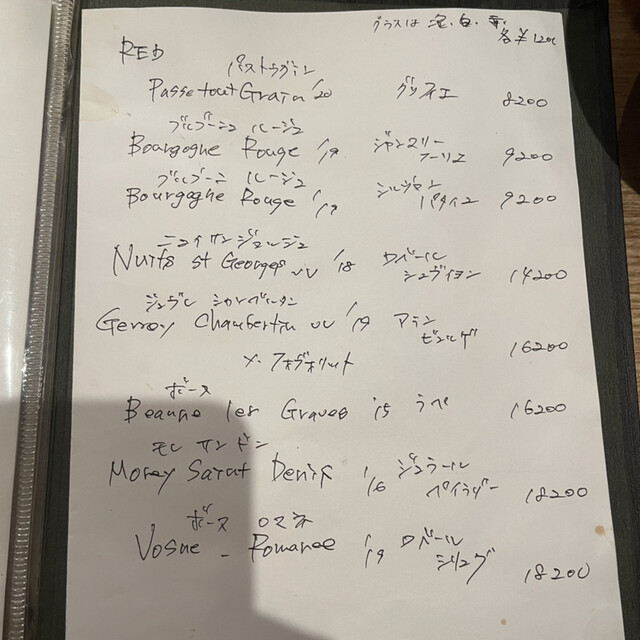 グラスは 泡、白、赤、
各¥1200
RED
パストゥグラン
Passe tout Grain '20 グリフィエ 8200
ブルゴーニュ ルージュ
Bourgogne Rouge '19 ジャンマリー
フーリエ 9200
ブルゴーニュ ルージュ
Bourgogne Rouge '19 シルヴァン
パタイユ 9200
ニュイ サン ジョルジュ
Nuits st Georges VV '18 ロベール
シュヴィヨン 14200
ジュヴレ シャンベルタン
Gevrey Chambertin VV '19 アラン
ビュルゲ 16200
メ・ファヴォリット
ボーヌ
Beaune 1er Graves '15 ラペ 16200
モレ サン ドニ
Morey Saint Denis '16 ジェラール
ペイラゾー 18200
ボーヌ ロマネ
Vosne - Romanee '19 ロベール
シリュグ 18200